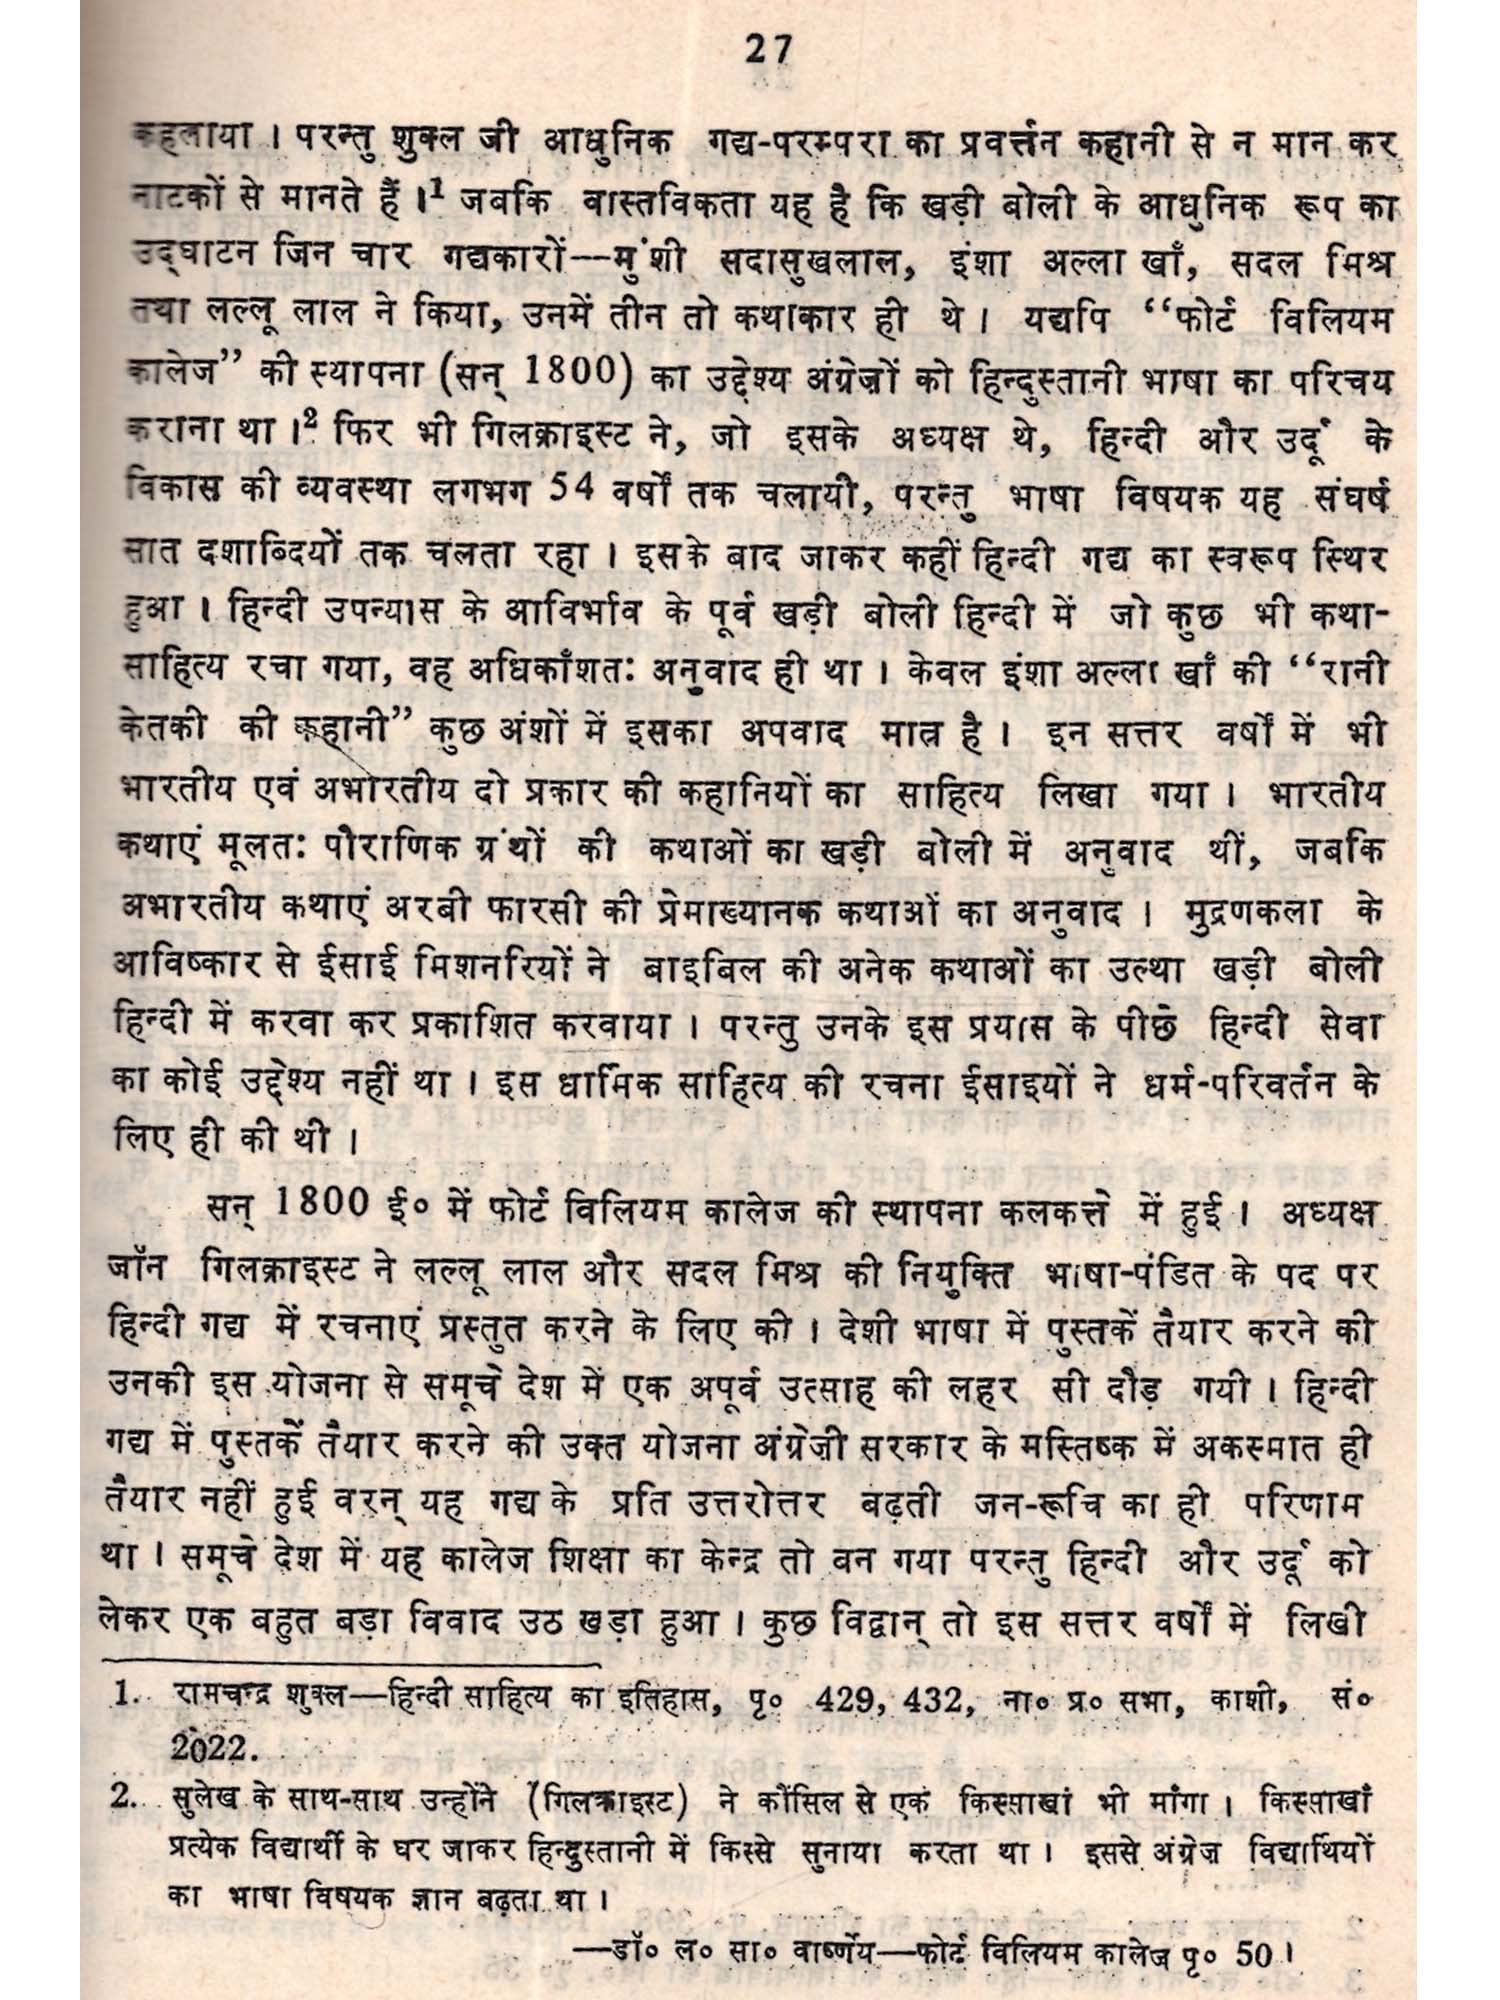 27
कहलाया । परन्तु शुक्ल जी आधुनिक गद्य-परम्परा का प्रवर्त्तन कहानी से न मान कर
नाटकों से मानते हैं ।1 जबकि वास्तविकता यह है कि खड़ी बोली के आधुनिक रूप का
उद्घाटन जिन चार गद्यकारों—मुंशी सदासुखलाल, इंशा अल्ला खाँ, सदल मिश्र
तथा लल्लू लाल ने किया, उनमें तीन तो कथाकार ही थे । यद्यपि “फोर्ट विलियम
कालेज” की स्थापना (सन् 1800) का उद्देश्य अंग्रेज़ों को हिन्दुस्तानी भाषा का परिचय
कराना था ।2 फिर भी गिलक्राइस्ट ने, जो इसके अध्यक्ष थे, हिन्दी और उर्दू के
विकास की व्यवस्था लगभग 54 वर्षों तक चलायी, परन्तु भाषा विषयक यह संघर्ष
सात दशाब्दियों तक चलता रहा । इसके बाद जाकर कहीं हिन्दी गद्य का स्वरूप स्थिर
हुआ । हिन्दी उपन्यास के आविर्भाव के पूर्व खड़ी बोली हिन्दी में जो कुछ भी कथा-
साहित्य रचा गया, वह अधिकाँशतः अनुवाद ही था । केवल इंशा अल्ला खाँ की “रानी
केतकी की कहानी” कुछ अंशों में इसका अपवाद मात्र है । इन सत्तर वर्षों में भी
भारतीय एवं अभारतीय दो प्रकार की कहानियों का साहित्य लिखा गया । भारतीय
कथाएं मूलतः पौराणिक ग्रंथों की कथाओं का खड़ी बोली में अनुवाद थीं, जबकि
अभारतीय कथाएं अरबी फारसी की प्रेमाख्यानक कथाओं का अनुवाद । मुद्रणकला के
आविष्कार से ईसाई मिशनरियों ने बाइबिल की अनेक कथाओं का उल्था खड़ी बोली
हिन्दी में करवा कर प्रकाशित करवाया । परन्तु उनके इस प्रयास के पीछे हिन्दी सेवा
का कोई उद्देश्य नहीं था । इस धार्मिक साहित्य की रचना ईसाइयों ने धर्म-परिवर्तन के
लिए ही की थी ।
सन् 1800 ई० में फोर्ट विलियम कालेज की स्थापना कलकत्ते में हुई । अध्यक्ष
जॉन गिलक्राइस्ट ने लल्लू लाल और सदल मिश्र की नियुक्ति भाषा-पंडित के पद पर
हिन्दी गद्य में रचनाएं प्रस्तुत करने के लिए की । देशी भाषा में पुस्तकें तैयार करने की
उनकी इस योजना से समूचे देश में एक अपूर्व उत्साह की लहर सी दौड़ गयी । हिन्दी
गद्य में पुस्तकें तैयार करने की उक्त योजना अंग्रेज़ी सरकार के मस्तिष्क में अकस्मात ही
तैयार नहीं हुई वरन् यह गद्य के प्रति उत्तरोत्तर बढ़ती जन-रूचि का ही परिणाम
था । समूचे देश में यह कालेज शिक्षा का केन्द्र तो बन गया परन्तु हिन्दी और उर्दू को
लेकर एक बहुत बड़ा विवाद उठ खड़ा हुआ । कुछ विद्वान् तो इस सत्तर वर्षों में लिखी
1. रामचन्द्र शुक्ल—हिन्दी साहित्य का इतिहास, पृ० 429, 432, ना० प्र० सभा, काशी, सं०
2022.
2. सुलेख के साथ-साथ उन्होंने (गिलक्राइस्ट) ने कौंसिल से एक किस्साखां भी माँगा । किस्साखाँ
प्रत्येक विद्यार्थी के घर जाकर हिन्दुस्तानी में किस्से सुनाया करता था । इससे अंग्रेज़ विद्यार्थियों
का भाषा विषयक ज्ञान बढ़ता था ।
—डॉ० ल० सा० वार्ष्णेय—फोर्ट विलियम कालेज पृ० 50 ।